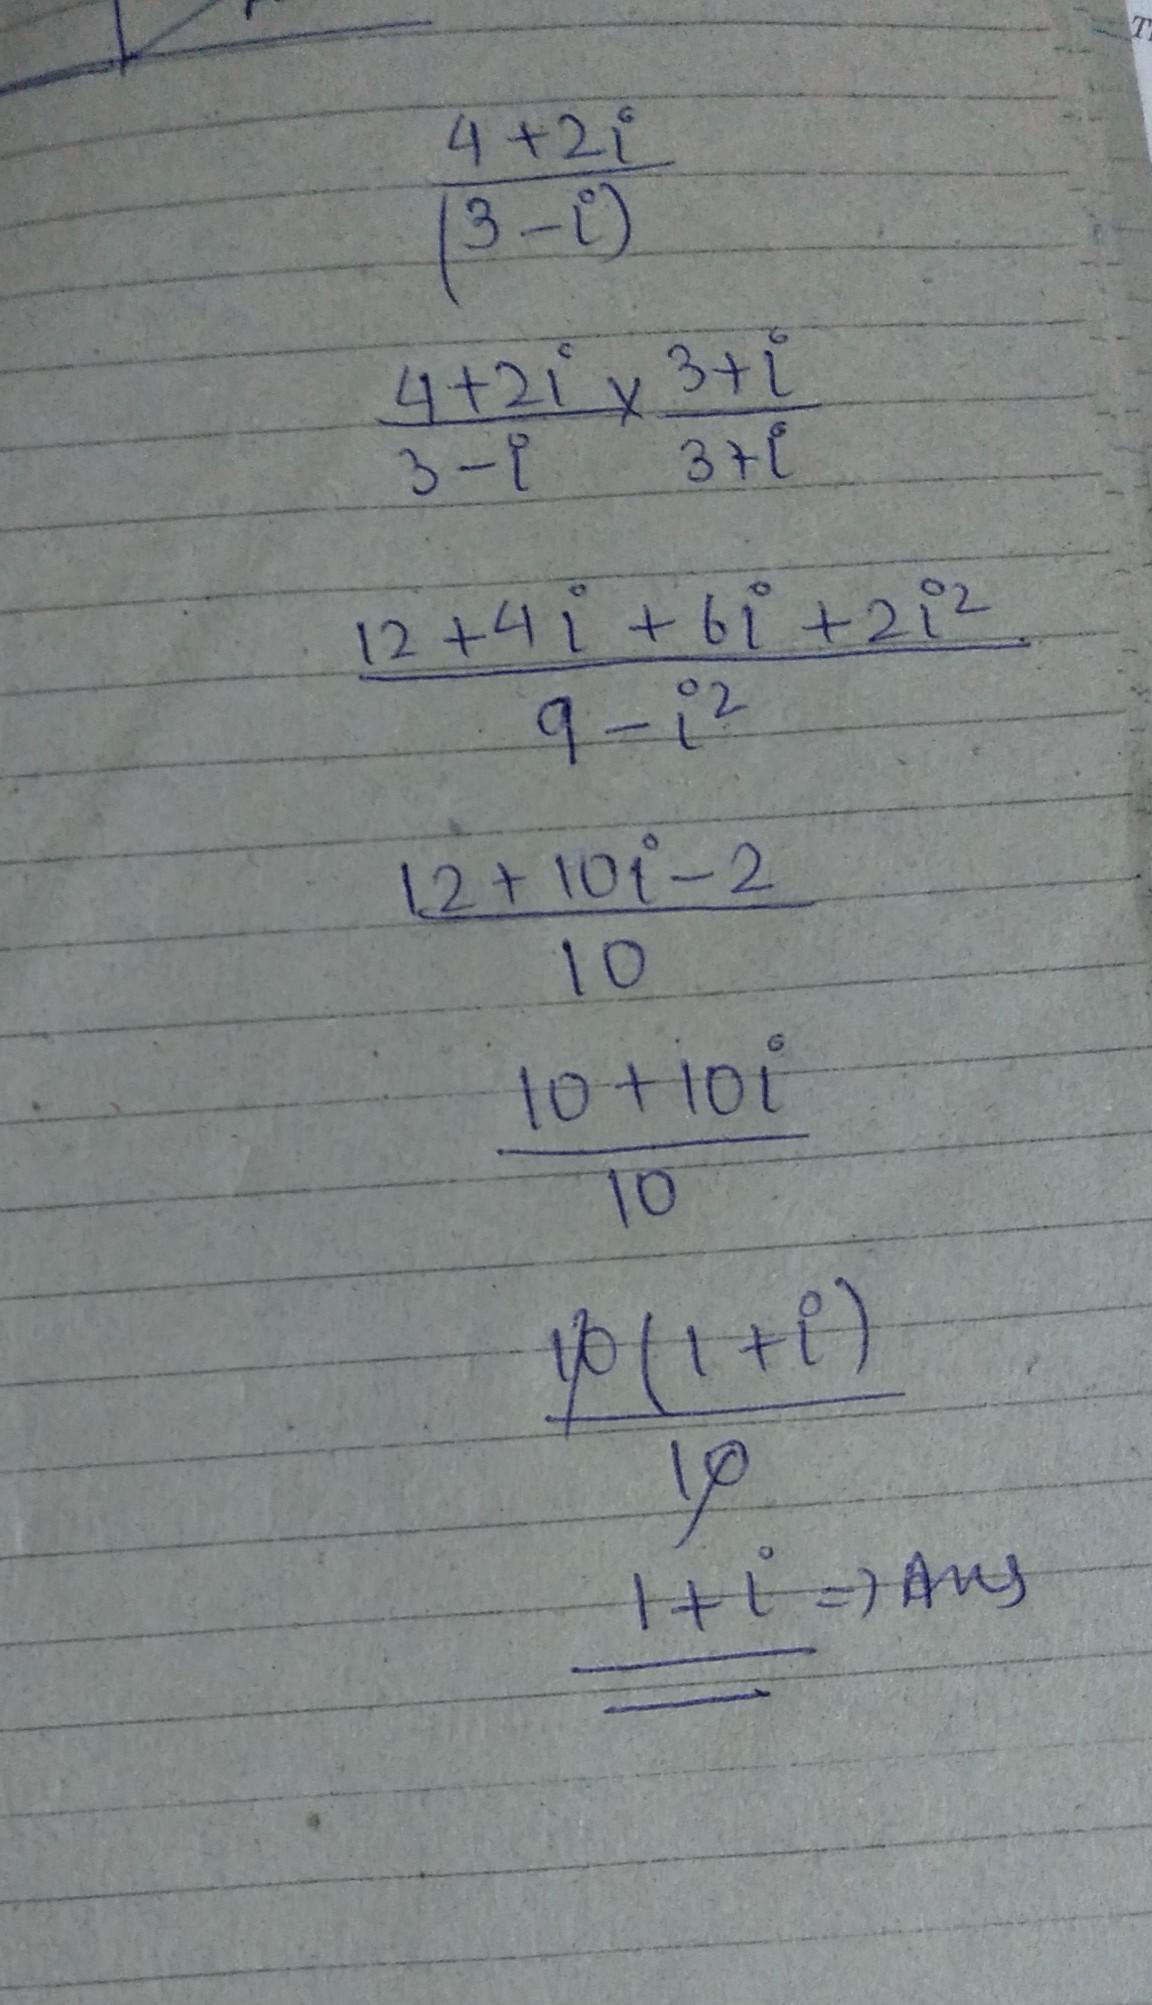 4 + 2i
(3 - i)
4 + 2i × 3 + i
3 - i 3 + i
12 + 4i + 6i + 2i²
9 - i²
12 + 10i - 2
10
10 + 10i
10
10(1 + i)
10
1 + i => Ans